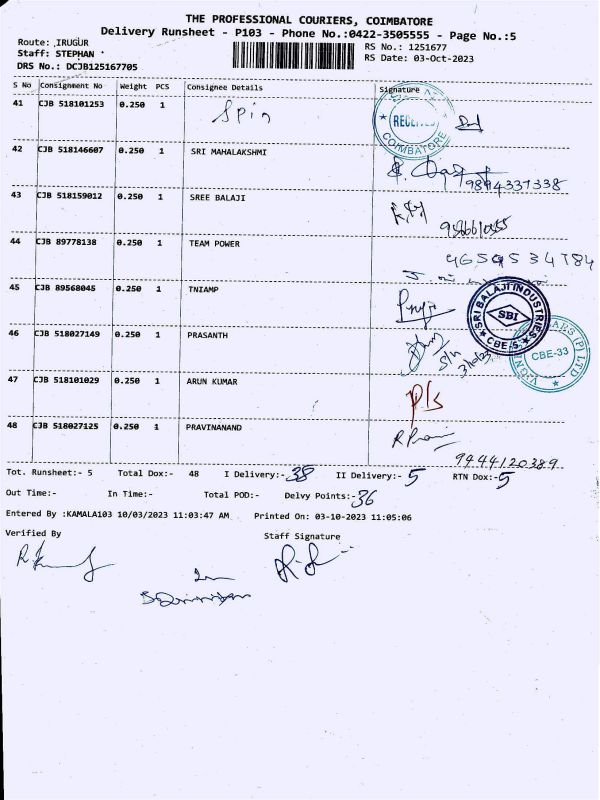 THE PROFESSIONAL COURIERS, COIMBATORE
Delivery Runsheet - P103 - Phone No.:0422-3505555 - Page No.:5
Route: .IRUGUR
RS No.: 1251677
Staff: STEPHAN
RS Date: 03-Oct-2023
DRS No.: DCJB125167705
S No Consignment No Weight PCS Consignee Details Signature
41 CJB 518101253 0.250 1 Spin
RECEIVED
COIMBATORE
42 CJB 518146607 0.250 1 SRI MAHALAKSHMI
9894337338
43 CJB 518159012 0.250 1 SREE BALAJI
44 CJB 89778138 0.250 1 TEAM POWER
9659534784
45 CJB 89568045 0.250 1 TNIAMP
SRI BALAJI INDUSTRIES
SBI
CBE-5
46 CJB 518027149 0.250 1 PRASANTH
S/n
3/10/23
CBE-33
(P) LTD
47 CJB 518101029 0.250 1 ARUN KUMAR
P/s
48 CJB 518027125 0.250 1 PRAVINANAND
9444120389
Tot. Runsheet:- 5 Total Dox:- 48 I Delivery:- 38 II Delivery:- 5 RTN Dox:- 5
Out Time:- In Time:- Total POD:- Delvy Points:- 36
Entered By :KAMALA103 10/03/2023 11:03:47 AM Printed On: 03-10-2023 11:05:06
Verified By Staff Signature